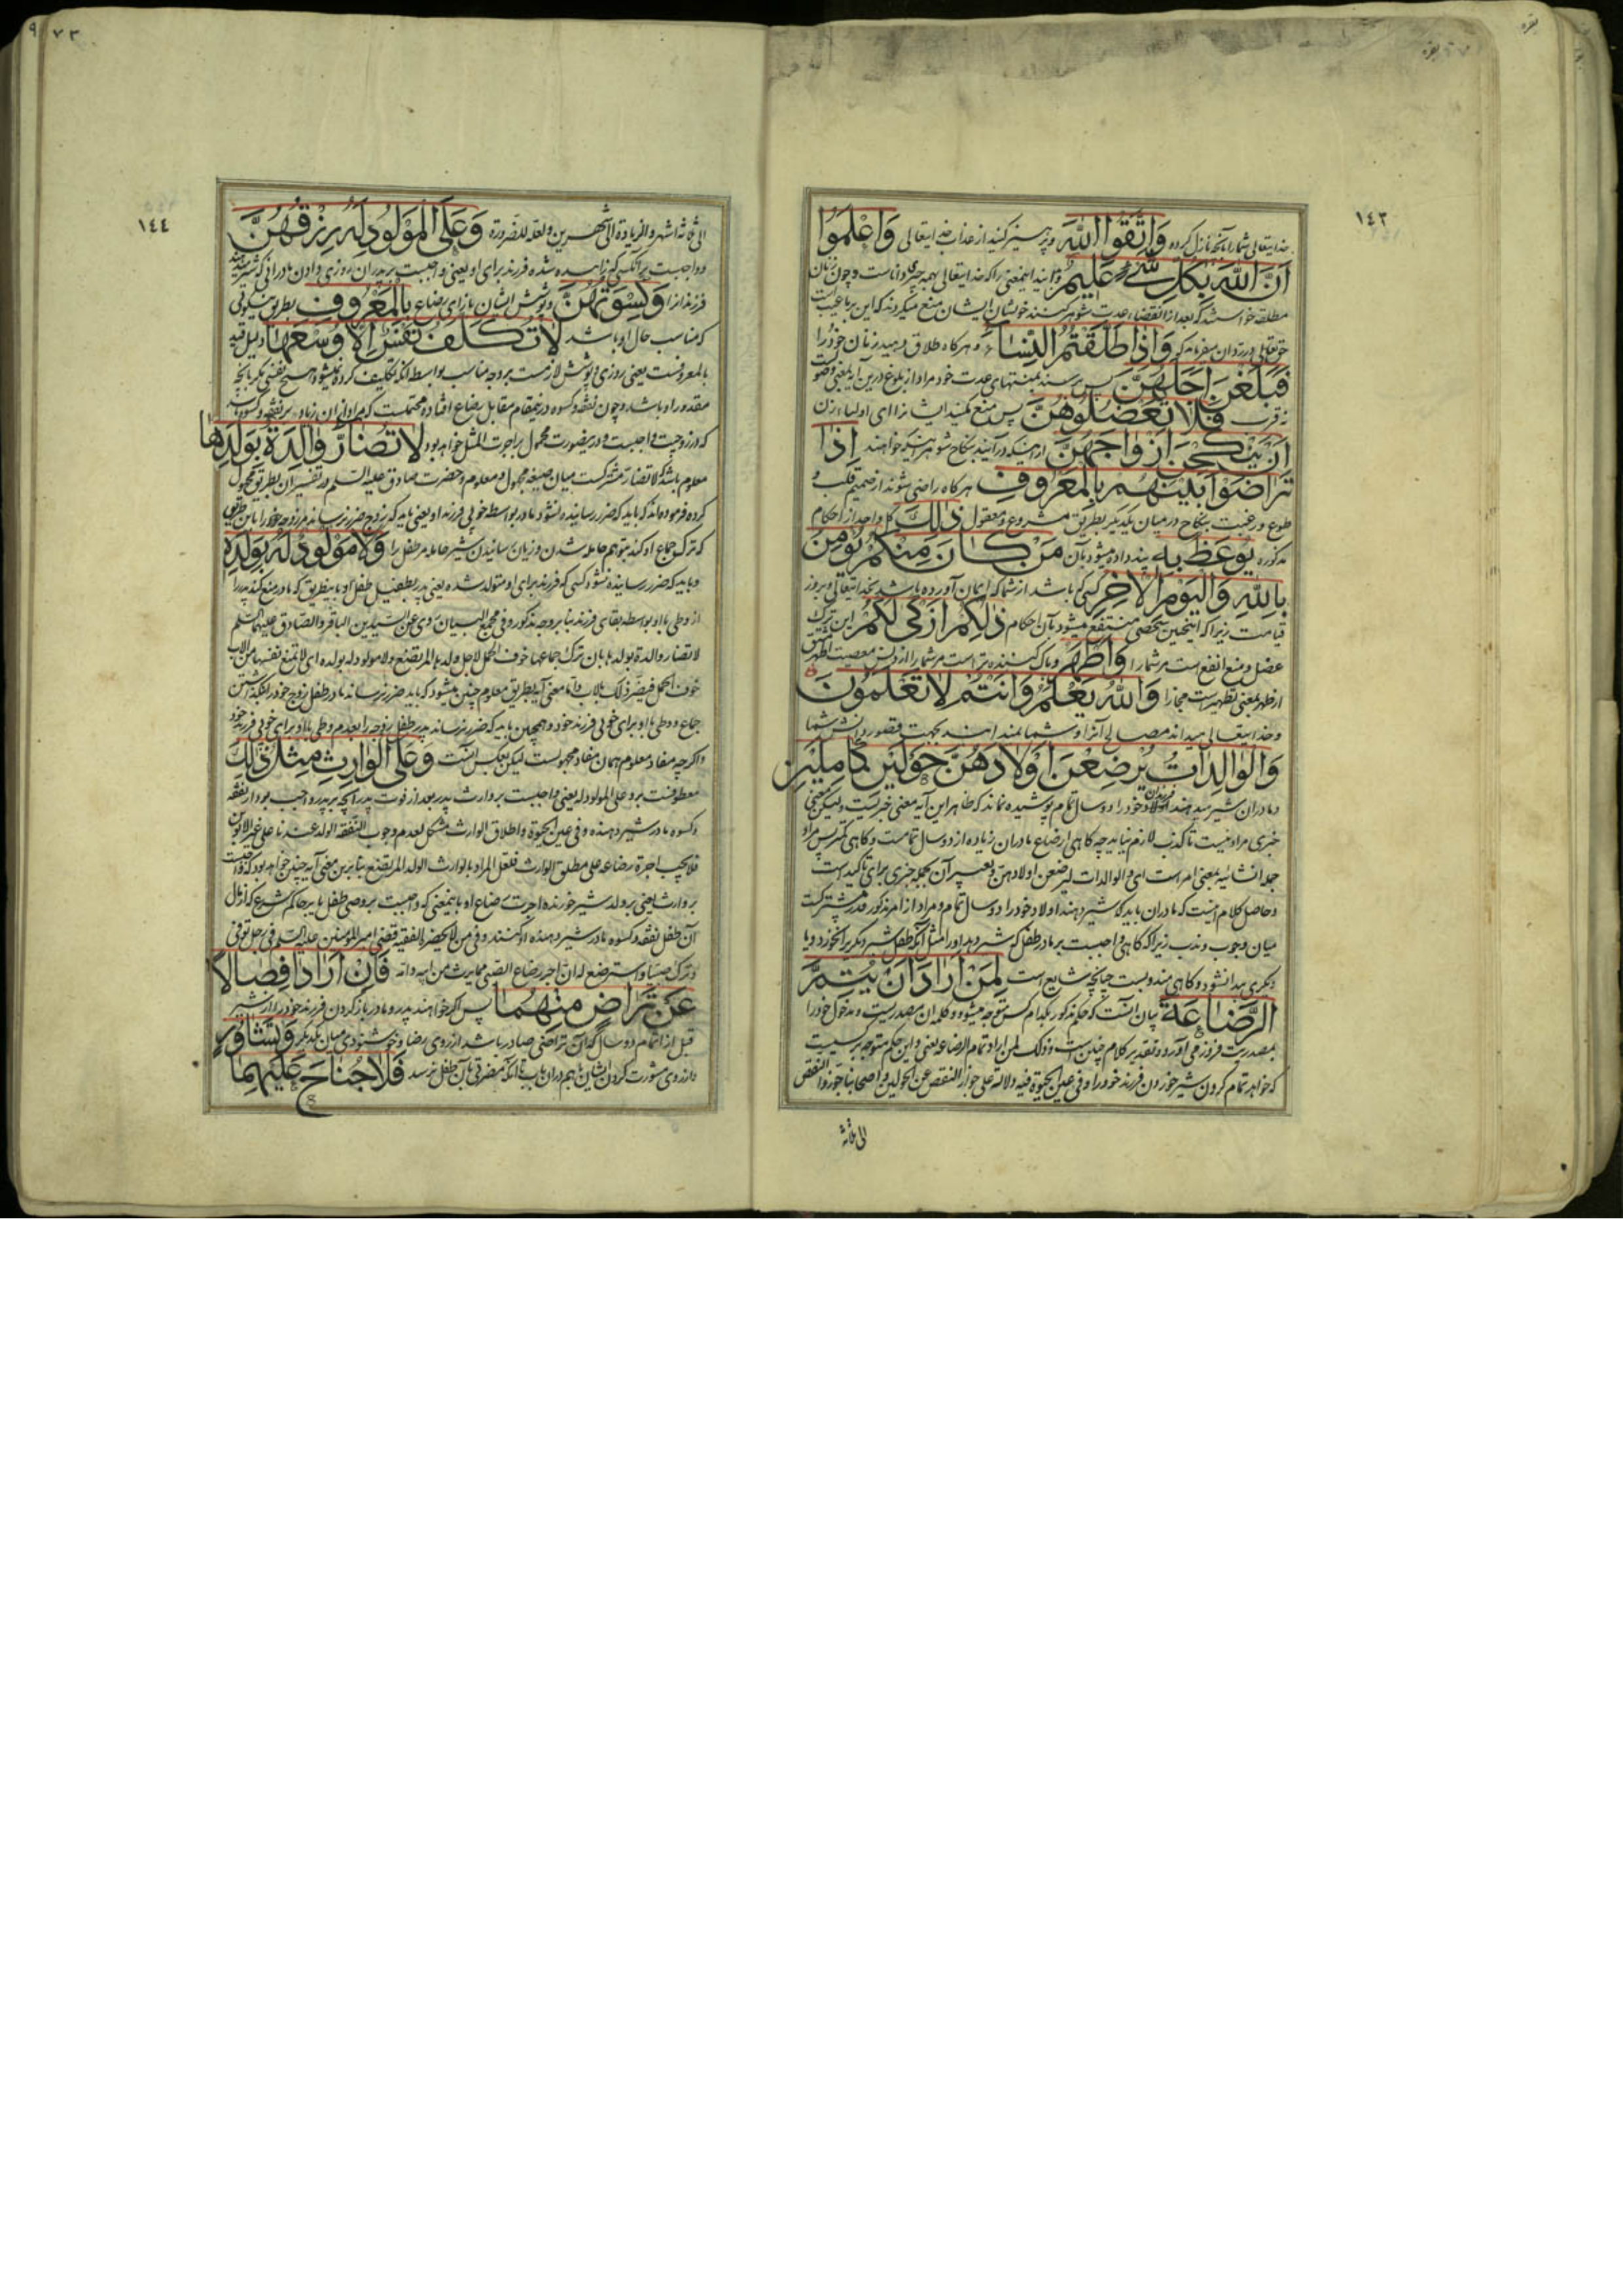 بقره
١٤٣
خدایتعالی شما را بآنچه نازل کرده وَاتَّقُوا اللَّهَ وپرهیز کنید از عذاب خدایتعالی وَاعْلَمُوا
أَنَّ اللَّهَ بِكُلِّ شَيْءٍ عَلِيمٌ وبدانید اینمعنی را که خدایتعالی بهمه چیزی داناست و چون
مطلقه خواستند که بعد از انقضاء عدت شوهر کنند خویشان ایشان منع میکردند که این
حقتعالی در رد آن میفرماید که وَإِذَا طَلَّقْتُمُ النِّسَاءَ و هرگاه طلاق دهید زنان خود را
فَبَلَغْنَ أَجَلَهُنَّ پس برسند بمنتهای عدت خود مراد از بلوغ درین آیه
قرب فَلَا تَعْضُلُوهُنَّ پس منع مکنید ایشانرا ای اولیاء زن
أَنْ يَنْكِحْنَ أَزْوَاجَهُنَّ از اینکه درآیند بنکاح شوهرانیکه خواهند إِذَا
تَرَاضَوْا بَيْنَهُمْ بِالْمَعْرُوفِ هرگاه راضی شوند از صمیم قلب و
طوع و رغبت بنکاح در میان یکدیگر بطریق مشروع و معقول ذَٰلِكَ هر واحد از احکام
مذکوره يُوعَظُ بِهِ پند داده میشود بآن مَنْ كَانَ مِنْكُمْ يُؤْمِنُ
بِاللَّهِ وَالْيَوْمِ الْآخِرِ کسیکه باشد از شما که ایمان آورده باشد بخدایتعالی و بروز
قیامت زیرا که اینچنین شخصی منتفع میشود بآن احکام ذَٰلِكُمْ أَزْكَىٰ لَكُمْ این ترک
عضل و منع انفع است مر شما را وَأَطْهَرُ و پاک کننده تر است مر شما را از دنس معصیت
از طهر بمعنی تطهیر است مجازا وَاللَّهُ يَعْلَمُ وَأَنْتُمْ لَا تَعْلَمُونَ
و خدایتعالی میداند مصالح آنرا و شما نمیدانید بجهت قصور دانش شما
وَالْوَالِدَاتُ يُرْضِعْنَ أَوْلَادَهُنَّ حَوْلَيْنِ كَامِلَيْنِ
و مادران شیر میدهند اولاد خود را دو سال تمام پوشیده نماند که ظاهر این آیه معنی خبریست ولیکن معنی
خبری مراد نیست تا کذب لازم نیاید چه گاهی ارضاع مادران زیاده از دو سال تمامست و گاهی کمتر پس مراد
جمله انشائیه بمعنی امر است ای والوالدات لیرضعن اولادهن و تعبیر آن بجمله خبری برای تاکیدست
و حاصل کلام اینست که مادران باید که شیر دهند اولاد خود را دو سال تمام و مراد از امر مذکور قدر مشترکست
میان وجوب و ندب زیرا که گاهی واجبست بر مادر طفل که شیر دهد او را مثل آنکه طفل شیر دیگریرا نخورد و یا
دیگری پیدا نشود و گاهی مندوبست چنانچه شایع است لِمَنْ أَرَادَ أَنْ يُتِمَّ
الرَّضَاعَةَ بیان آنست که حکم مذکور بکدام کس متوجه میشود و کلمه ان مصدریست و مدخول خود را
بمصدریت فرود می آورد و تقدیر کلام چنین است و ذلک لمن اراد تمام الرضاعه یعنی و این حکم متوجه بر کسیست
که خواهد تمام کردن شیر خوردن فرزند خود را و فی عین الحیوة فیه دلالة علی جواز النقص عن الحولین و اصحابنا جوزوا النقص
الی ثلثه
٧٣
١٤٤
الی ثلثه اشهر والزیادة الی شهرین ولعله للضرورة وَعَلَى الْمَوْلُودِ لَهُ رِزْقُهُنَّ
و واجبست بر آنکسی که زائیده شده فرزند برای او یعنی واجبست بر پدران روزی دادن مادرانی که شیر میدهند
فرزند او را وَكِسْوَتُهُنَّ و پوشش ایشان بازای رضاع بِالْمَعْرُوفِ بطریق نیکوئی
که مناسب حال او باشد لَا تُكَلَّفُ نَفْسٌ إِلَّا وُسْعَهَا دلیل قید
بالمعروفست یعنی روزی و پوشش لازمست بر وجه مناسب بواسطه آنکه تکلیف کرده نمیشود هیچ نفسی مگر بآنچه
مقدور او باشد و چون نفقه و کسوه درینمقام مقابل رضاع افتاده محتملست که مراد از آن زیاده بر نفقه و کسوه باشد
که در زوجیت واجبست و درینصورت محمول بر اجرت المثل خواهد بود لَا تُضَارَّ وَالِدَةٌ بِوَلَدِهَا
معلوم باشد که لا تضار مشترکست میان صیغه مجهول و معلوم و حضرت صادق علیه السلم در تفسیر آن بطریق مجهول
کرده فرموده اند که باید که ضرر رسانیده نشود مادر بواسطه خوبی فرزند او یعنی باید که زوج ضرر نرساند مر زوجه خود را باین طریق
که ترک جماع او کند بتوهم حامله شدن و زیان رسانیدن شیر حامله مر طفل را وَلَا مَوْلُودٌ لَهُ بِوَلَدِهِ
و باید که ضرر رسانیده نشود کسی که فرزند برای او متولد شده یعنی پدر بطفیل طفل او باینطریق که مادر منع کند پدر را
از وطی با او بواسطه بقای فرزند بنا بر وجه مذکور و فی مجمع البیان روی عن السیدین الباقر والصادق علیهما السلم
لا تضار والدة بولدها بان ترک جماعها خوف الحمل لاجل ولدها المرتضع ولا مولود له بولده ای لا تمنع نفسها من الاب
خوف الحمل فیضر ذلک بالاب و اما معنی آیه بطریق معلوم چنین میشود که باید ضرر نرساند مادر طفل زوج خود را
جماع و وطی با او برای خوبی فرزند خود و همچنین باید که ضرر نرساند پدر طفل زوجه را بعدم وطی با او برای خوبی فرزند خود
و اگرچه مفاد معلوم همان مفاد مجهولست لیکن بعکس آنست وَعَلَى الْوَارِثِ مِثْلُ ذَٰلِكَ
معطوفست بر و علی المولود له یعنی واجبست بر وارث پدر بعد از فوت پدر آنچه بر پدر واجب بود از نفقه
و کسوه مادر شیر دهنده و فی عین الحیوة و اطلاق الوارث مشکل لعدم وجوب النفقه الولد عندنا علی غیر الابوین
فلا یجب اجرة رضاعه علی مطلق الوارث فلعل المراد بالوارث الولد المرتضع بنابرین معنی آیه چنین خواهد بود که واجبست
بر وارث یعنی بر ولد شیر خورنده اجرت رضاع او باینمعنی که واجبست بر وصی طفل یا بر حاکم شرع که از مال
آن طفل نفقه و کسوه مادر شیر دهنده ادا کنند و فی من لا یحضره الفقیه قضی امیر المؤمنین علیه السلم فی رجل توفی
و ترک صبیا و استرضع له ان اجر رضاع الصبی مما یرث من ابیه و امه فَإِنْ أَرَادَا فِصَالًا
عَنْ تَرَاضٍ مِنْهُمَا پس اگر خواهند پدر و مادر باز کردن فرزند خود را از شیر
قبل از اتمام دو سال که آن تراضی صادر باشد از روی رضا و خوشنودی میان یکدیگر وَتَشَاوُرٍ
و از روی مشورت کردن ایشان باهم در آن باب تا آنکه مضرتی بآن طفل نرسد فَلَا جُنَاحَ عَلَيْهِمَا